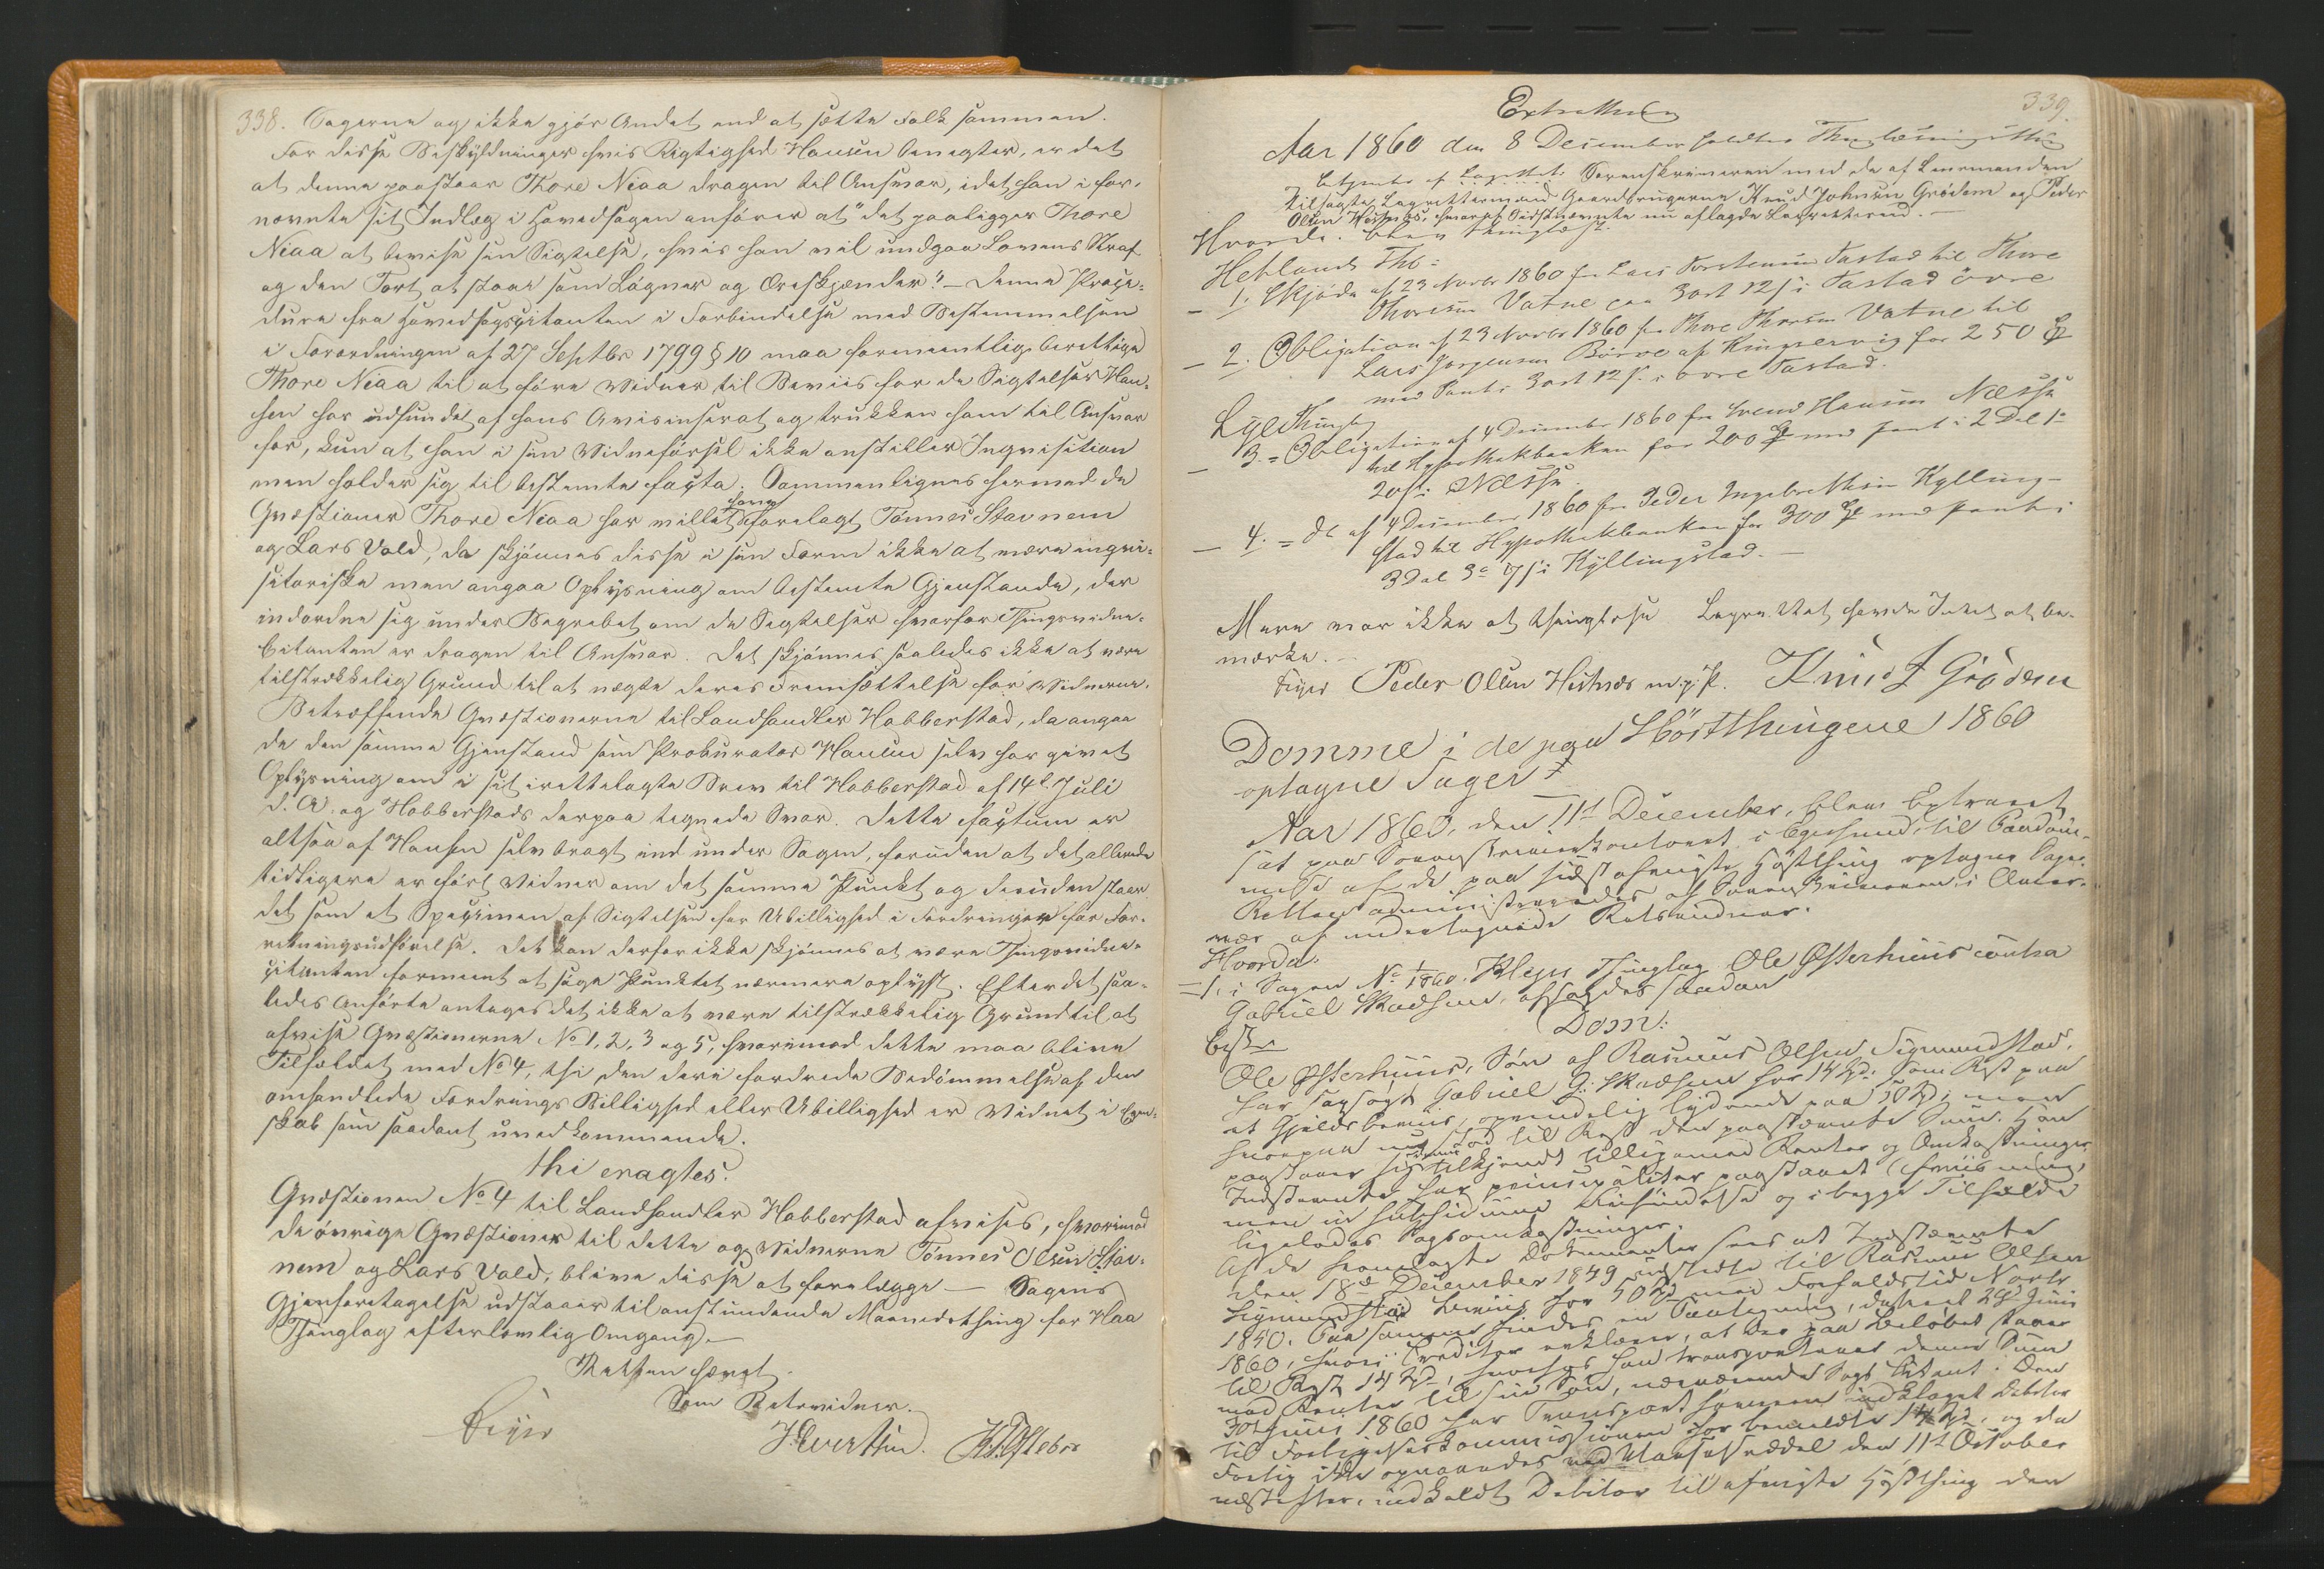 338.
Sagerne og ikke gjör Andet end at sætte Folk sammen.
For disse Beskyldninger hvis Rigtighed Hansen benegter, er det
at denne paastaar Thore Niaa dragen til Ansvar, idet han i for-
nevnte sit Indlæg i Hovedsagen anförer at "det paaligger Thore
Niaa at bevise sin Sigtelse, hvis han vil undgaa Lovens Straf
og den Tort at staae som Lögner og Æreskjænder." – Denne Proce-
dure fra Hovedsagscitanten i Forbindelse med Bestemmelsen
i Forordningen af 27 Septbr 1799 § 10 maa formeentlig berettige
Thore Niaa til at före Vidner til Beviis for de Sigtelser Han-
sen har udfundet af hans Avisinserat og trukken ham til Ansvar
for, kun at han i sin Vidneförsel ikke anstiller Inqvisition
men holder sig til bestemte facta. Sammenlignes hermed de
Qvæstioner Thore Niaa har villet forelagt Tönnes Stavnem
og Lars Vold, da skjönnes disse i sin Form ikke at være inqvi-
sitoriske men angaa Oplysning om bestemte Gjenstande, der
indordne sig under Begrebet om de Sigtelser hvorfor Thingsvidne-
citanten er dragen til Ansvar. Det skjönnes saaledes ikke at være
tilstrækkelig Grund til at nægte deres Fremsættelse for Vidnerne.
Betræffende Qvæstionerne til Landhandler Hobberstad, da angaa
de den samme Gjenstand som Prokurator Hansen selv har givet
Oplysning om i sit irettelagte Brev til Hobberstad af 14de Juli
d. A. og Hobberstads derpaa tegnede Svar. Dette factum er
altsaa af Hansen selv bragt ind under Sagen, foruden at det allerede
tidligere er fört Vidner om det samme Punkt og desuden staar
det som et Specimen af Sigtelsen for Ubillighed i Fordringer for For-
retningsudförelse. Det kan derfor ikke skjönnes at være Thingsvidne-
citanten formeent at söge Punktet nærmere oplyst. Efter det saa-
ledes Anförte antages det ikke at være tilstrækkelig Grund til at
afvise Qvæstionerne No 1, 2, 3 og 5, hvorimod dette maa blive
Tilfældet med No 4, thi den deri fordrede Bedömmelse af den
omhandlede Fordrings Billighed eller Ubillighed er Vidnet i Egen-
skab som saadant uvedkommende.
thi eragtes:
Qvæstionen No 4 til Landhandler Hobberstad afvises, hvorimod
de övrige Qvæstioner til dette og Vidnerne Tönnes Olsen Stav-
nem og Lars Vold, blive disse at forelægge – Sagens
Gjenforetagelse udstaaer til anstundende Maanedsthing for Haa
Thinglag efter lovlig Omgang. –
Retten hævet.
Som Retsvidner.
Feyer J. Evertsen. K. T. Ostebrö
339.
Extrathing
Aar 1860 den 8 December holdtes Thinglæsningsthing
betjent af Sorenskriveren med de af Lensmanden
tilsagte Lagrettesmænd Gaardbrugerne Knud Johnsen Grödem og Peder
Olsen Hestnes, hvoraf Sidstnævnte nu aflagde Lagretteseed. –
Hvorda: blev thinglæst
Hetlands Thb:
– 1. Skjöde af 23 Novbr 1860 fra Lars Torstensen Tastad til Thore
Thoresen Vatne paa 3ort 12 s i Tastad övre
– 2. Obligation af 23 Novbr 1860 fra Thore Thoresen Vatne til
Lars Jörgensen Börve af Kingservig for 250 Spd
med Pant i 3ort 12 s. i övre Tastad.
Lye Thinglag
– 3. = Obligation af 4 December 1860 fra Svend Hansen Næsse
til Hypothekbanken for 200 Spd med Pant i 2 Dal 1o
20 s i Næsse.
– 4. = do af 4 December 1860 fra Peder Ingebretsen Kylling-
stad til Hypothekbanken for 300 Spd med Pant i
3 Dal 3o 7 s i Kyllingstad. –
Mere var ikke at thinglæse Lagrettet havde Intet at be-
mærke. –
Feyer Peder Olsen Hestnes m. p. P. Knud J Grödem
Domme i de paa Hösttthingene 1860
optagne Sager
Aar 1860, den 11te December, blev Extraret
sat paa Sorenskriverkontoret i Egersund til Paadöm-
melse af de paa sidst afvigte Hösthing optagne Sager.
Retten administreredes af Sorenskriveren i Overvær
af undertegnede Retsvidner.
Hvorda:
– 1. i Sagen No 1/1860. Klepps Thinglag Ole Østerhuus contra
Gabriel Skadsem, afsagdes saadan
Dom:
Ole Østerhuus, Sön af Rasmus Olsen Sigmundstad,
har sagsögt Gabriel G. Skadsem for 14 Spd. som Rest paa
et Gjeldsbeviis, oprindelig lydende paa 50 Spd, men
hvorpaa nu stod til Rest den paastævnte Sum. Han
paastaaer sig denne tilkjendt tilligemed Renter og Omkostninger,
Indstevnte har principaliter paastaaet Afviisning,
men in subsidium Frifindelse og i begge Tilfælde
ligeledes Sagsomkostninger.
Af de fremlagte Dokumenter sees at Indstævnte
den 18de December 1849 udstedte til Rasmus Olsen
Sigmundstad Beviis for 50 Spd med Forfaldstid Novbr
1850. Paa samme findes en Paategning, dateret 28 Juni
1860, hvori Creditor erklærer, at der paa Belöbet staaer
til Rest 14 Spd, hvorhos han transporterer denne Sum
med Renter til sin Sön, nærværende Sags Citant. Den
30 Juni 1860 har Transporthaveren indklaget Debitor
til Forligelseskommissionen for bemeldte 14 Spd, og da
Forlig ikke opnaaedes ved Klageseddel den 11te October
næstefter, indkaldt Debitor til afvigte Hösthing den